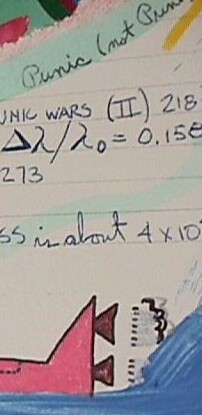 Punic (not Puni
UNIC WARS (II) 218-
Δλ/λ₀ = 0.158
273
SS is about 4 x 10